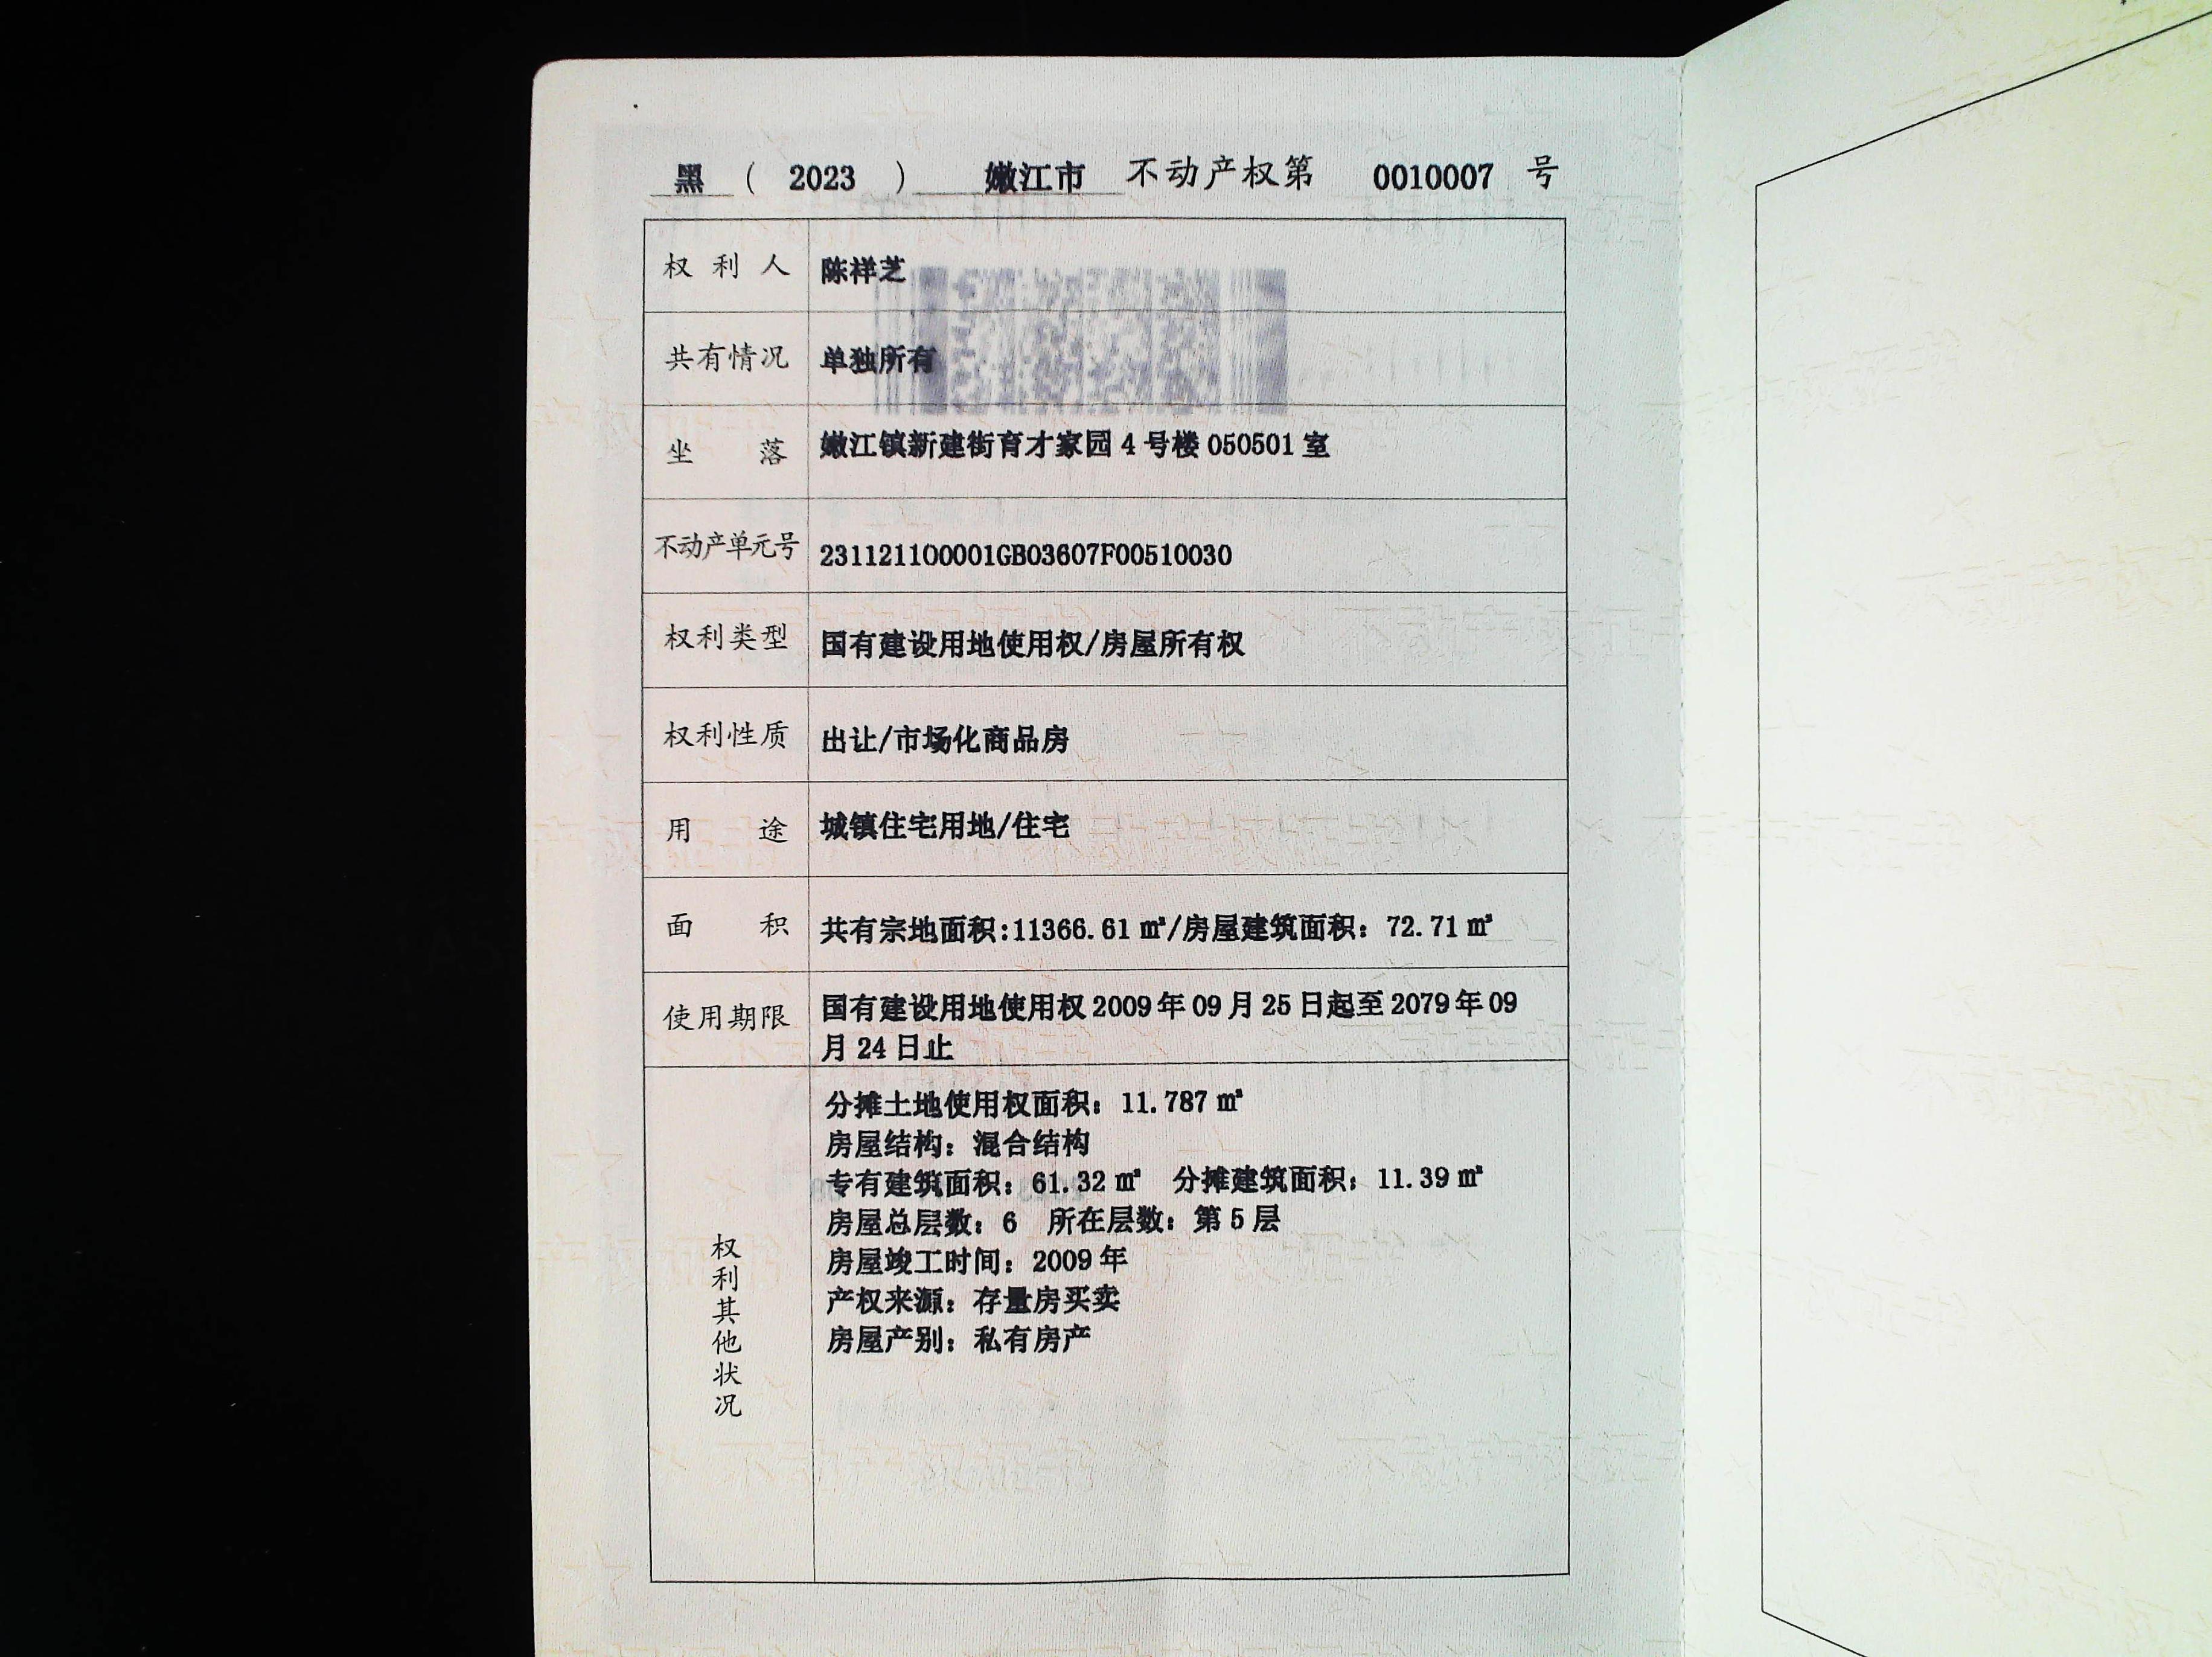 黑 ( 2023 ) 嫩江市 不动产权第 0010007 号
权利人 陈祥芝
共有情况 单独所有
坐落 嫩江镇新建街育才家园 4 号楼 050501 室
不动产单元号 231121100001GB03607F00510030
权利类型 国有建设用地使用权/房屋所有权
权利性质 出让/市场化商品房
用途 城镇住宅用地/住宅
面积 共有宗地面积:11366.61 ㎡/房屋建筑面积: 72.71 ㎡
使用期限 国有建设用地使用权 2009 年 09 月 25 日起至 2079 年 09
月 24 日止
权利其他状况
分摊土地使用权面积: 11.787 ㎡
房屋结构: 混合结构
专有建筑面积: 61.32 ㎡ 分摊建筑面积: 11.39 ㎡
房屋总层数: 6 所在层数: 第 5 层
房屋竣工时间: 2009 年
产权来源: 存量房买卖
房屋产别: 私有房产